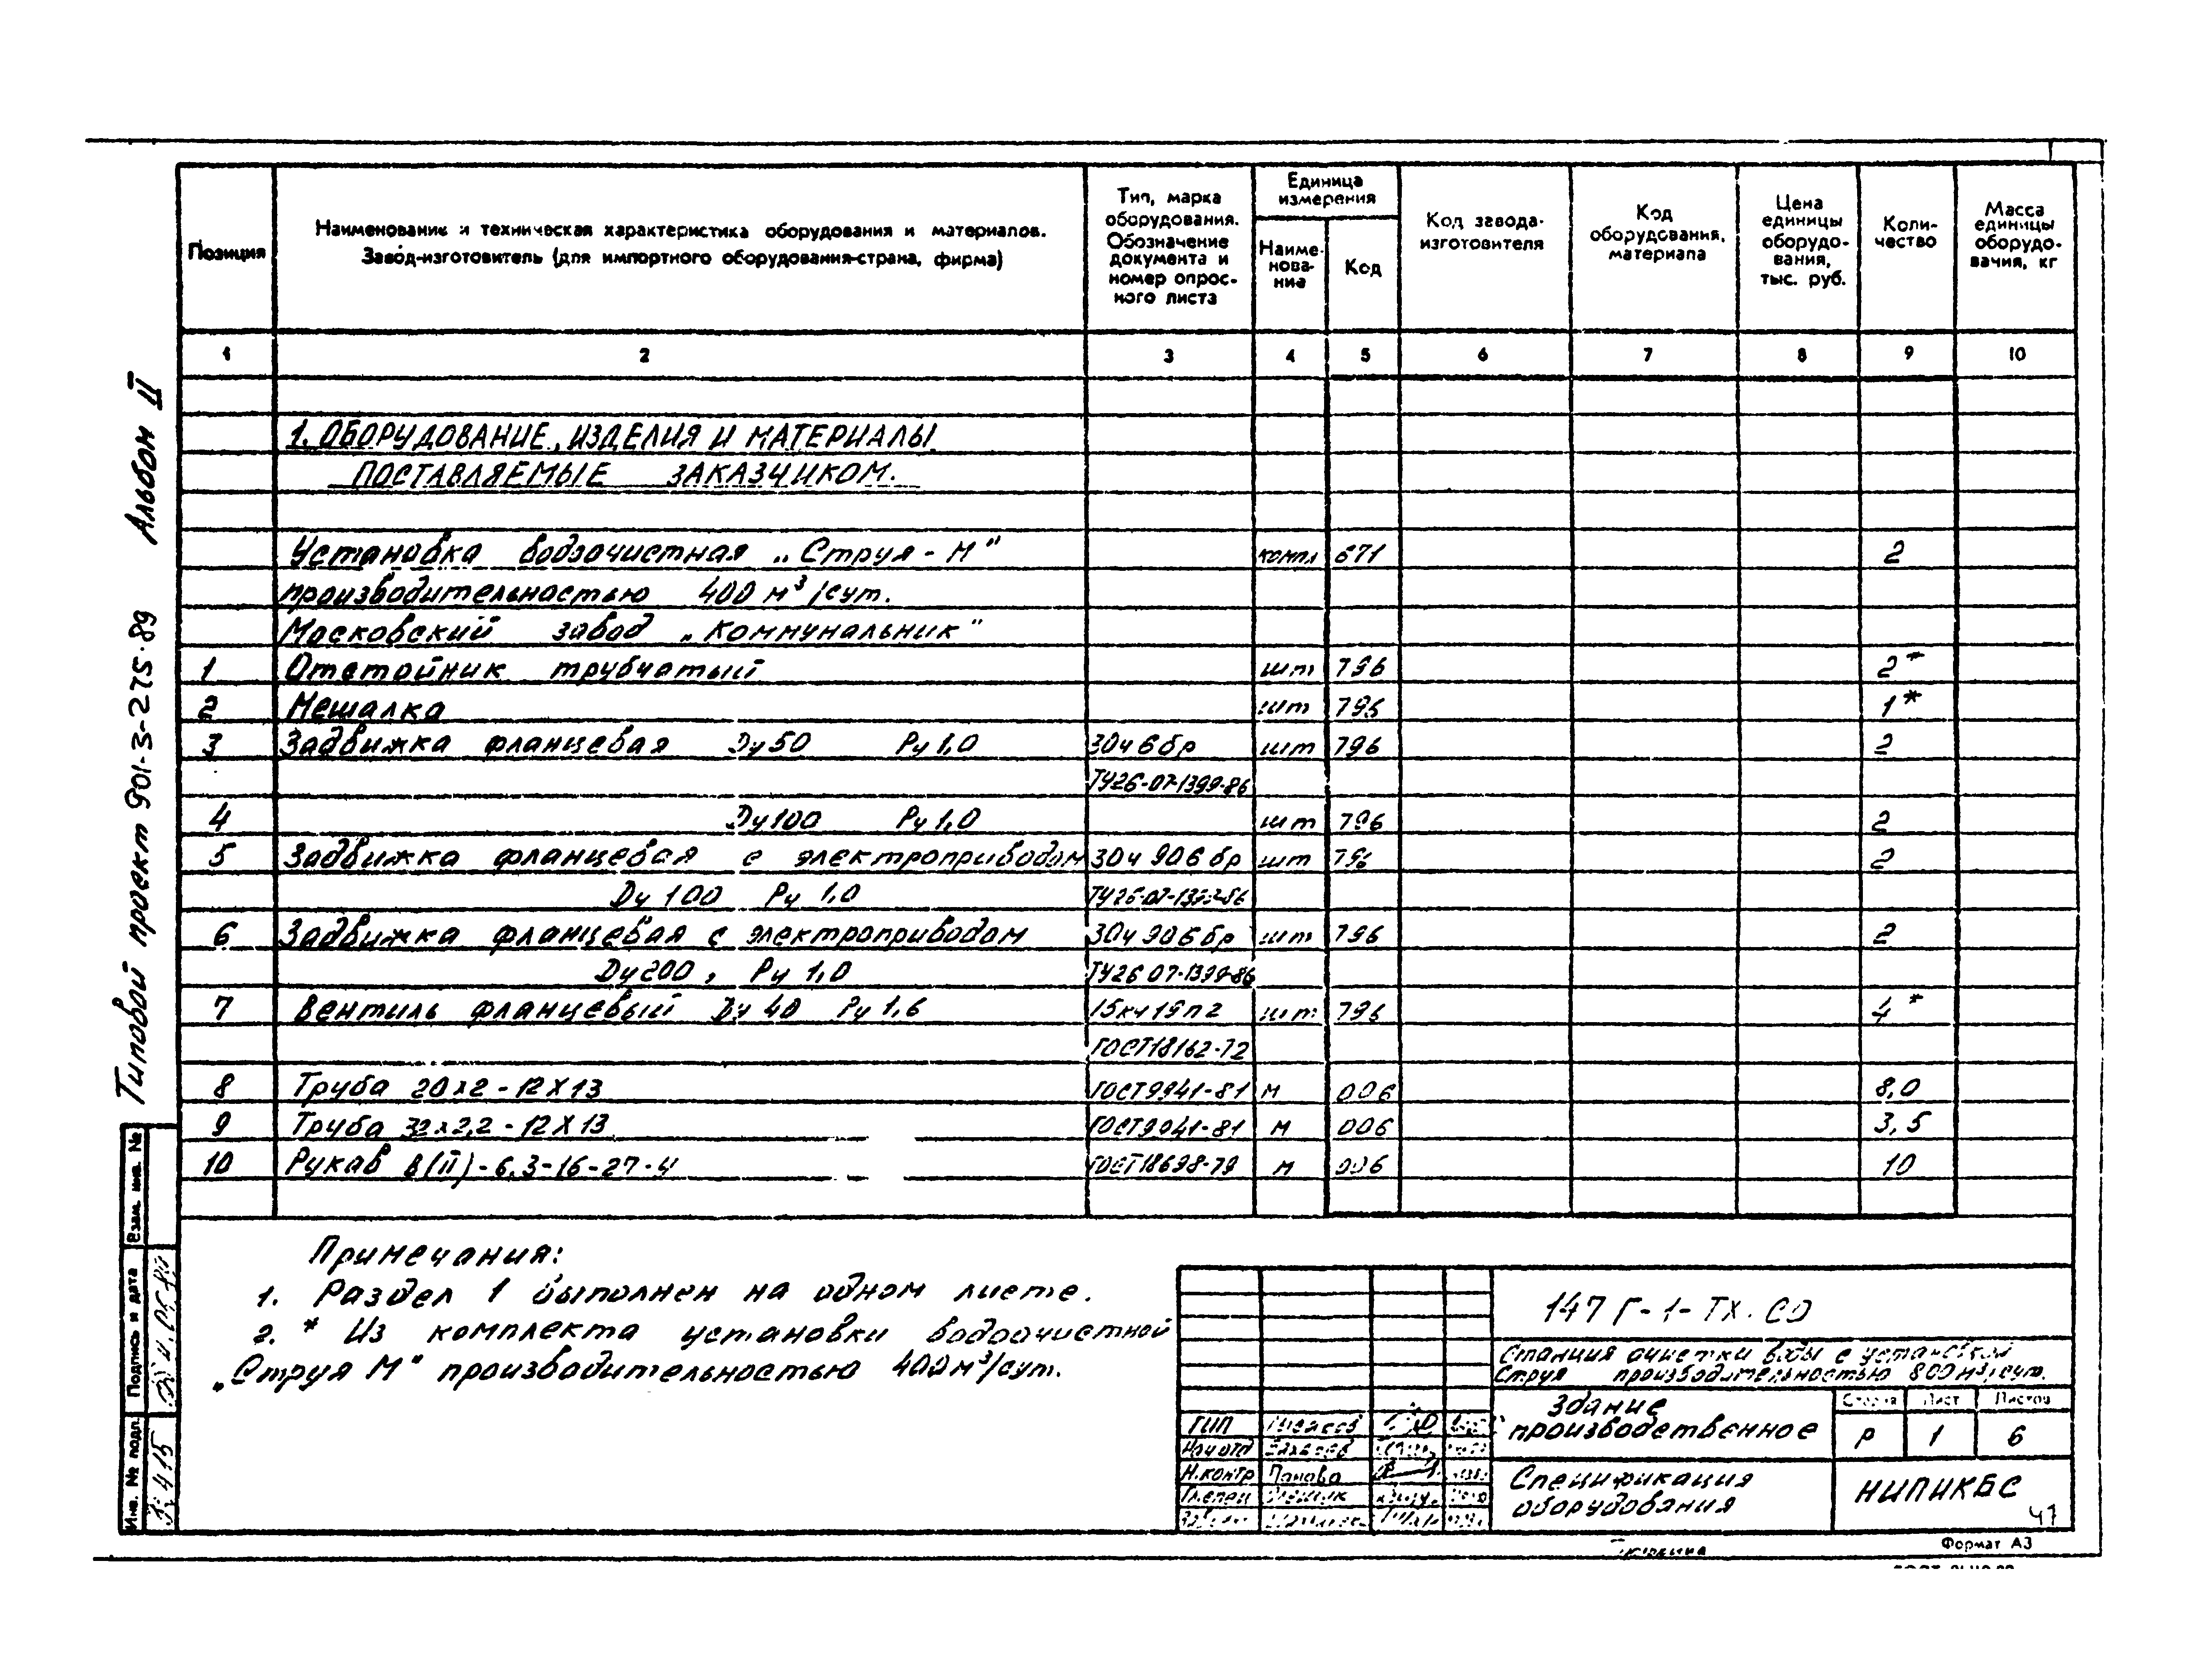 Позиция
Наименование и техническая характеристика оборудования и материалов.
Завод-изготовитель (для импортного оборудования-страна, фирма)
Тип, марка
оборудования.
Обозначение
документа и
номер опрос-
ного листа
Единица
измерения
Наиме-
нова-
ние
Код
Код завода-
изготовителя
Код
оборудования,
материала
Цена
единицы
оборудо-
вания,
тыс. руб.
Коли-
чество
Масса
единицы
оборудо-
вания, кг
1 2 3 4 5 6 7 8 9 10
1. ОБОРУДОВАНИЕ, ИЗДЕЛИЯ И МАТЕРИАЛЫ
ПОСТАВЛЯЕМЫЕ ЗАКАЗЧИКОМ.
Установка водоочистная „Струя-М" компл 671 2
производительностью 400 м³/сут.
Московский завод „Коммунальник"
1 Отстойник трубчатый шт 796 2*
2 Мешалка шт 796 1*
3 Задвижка фланцевая Ду50 Ру1,0 30ч6бр шт 796 2
ТУ26-07-1399-86
4 Ду100 Ру1,0 шт 796 2
5 Задвижка фланцевая с электроприводом 30ч906бр шт 796 2
Ду 100 Ру 1,0 ТУ26-07-1399-86
6 Задвижка фланцевая с электроприводом 30ч906бр шт 796 2
Ду200, Ру 1,0 ТУ26 07-1399-86
7 Вентиль фланцевый Ду 40 Ру 1,6 15кч19п2 шт 796 4*
ГОСТ18162-72
8 Труба 20х2-12Х13 ГОСТ9941-81 м 006 8,0
9 Труба 32х2,2-12Х13 ГОСТ9941-81 м 006 3,5
10 Рукав В(II)-6,3-16-27-4 ГОСТ18698-79 м 006 10
Примечания:
1. Раздел 1 выполнен на одном листе.
2. * Из комплекта установки водоочистной
„Струя М" производительностью 400м³/сут.
147 Г-1-ТХ.СО
Станция очистки воды с установкой
Струя производительностью 800м³/сут.
Здание
производственное
Стадия Лист Листов
Р 1 6
Спецификация
оборудования
НИПИКБС
47
ГИП
Нач отд
Н.контр Панова
Гл.спец
Формат А3
Типовой проект 901-3-275.89 Альбом II
Взам. инв. №
Подпись и дата
Инв. № подл.